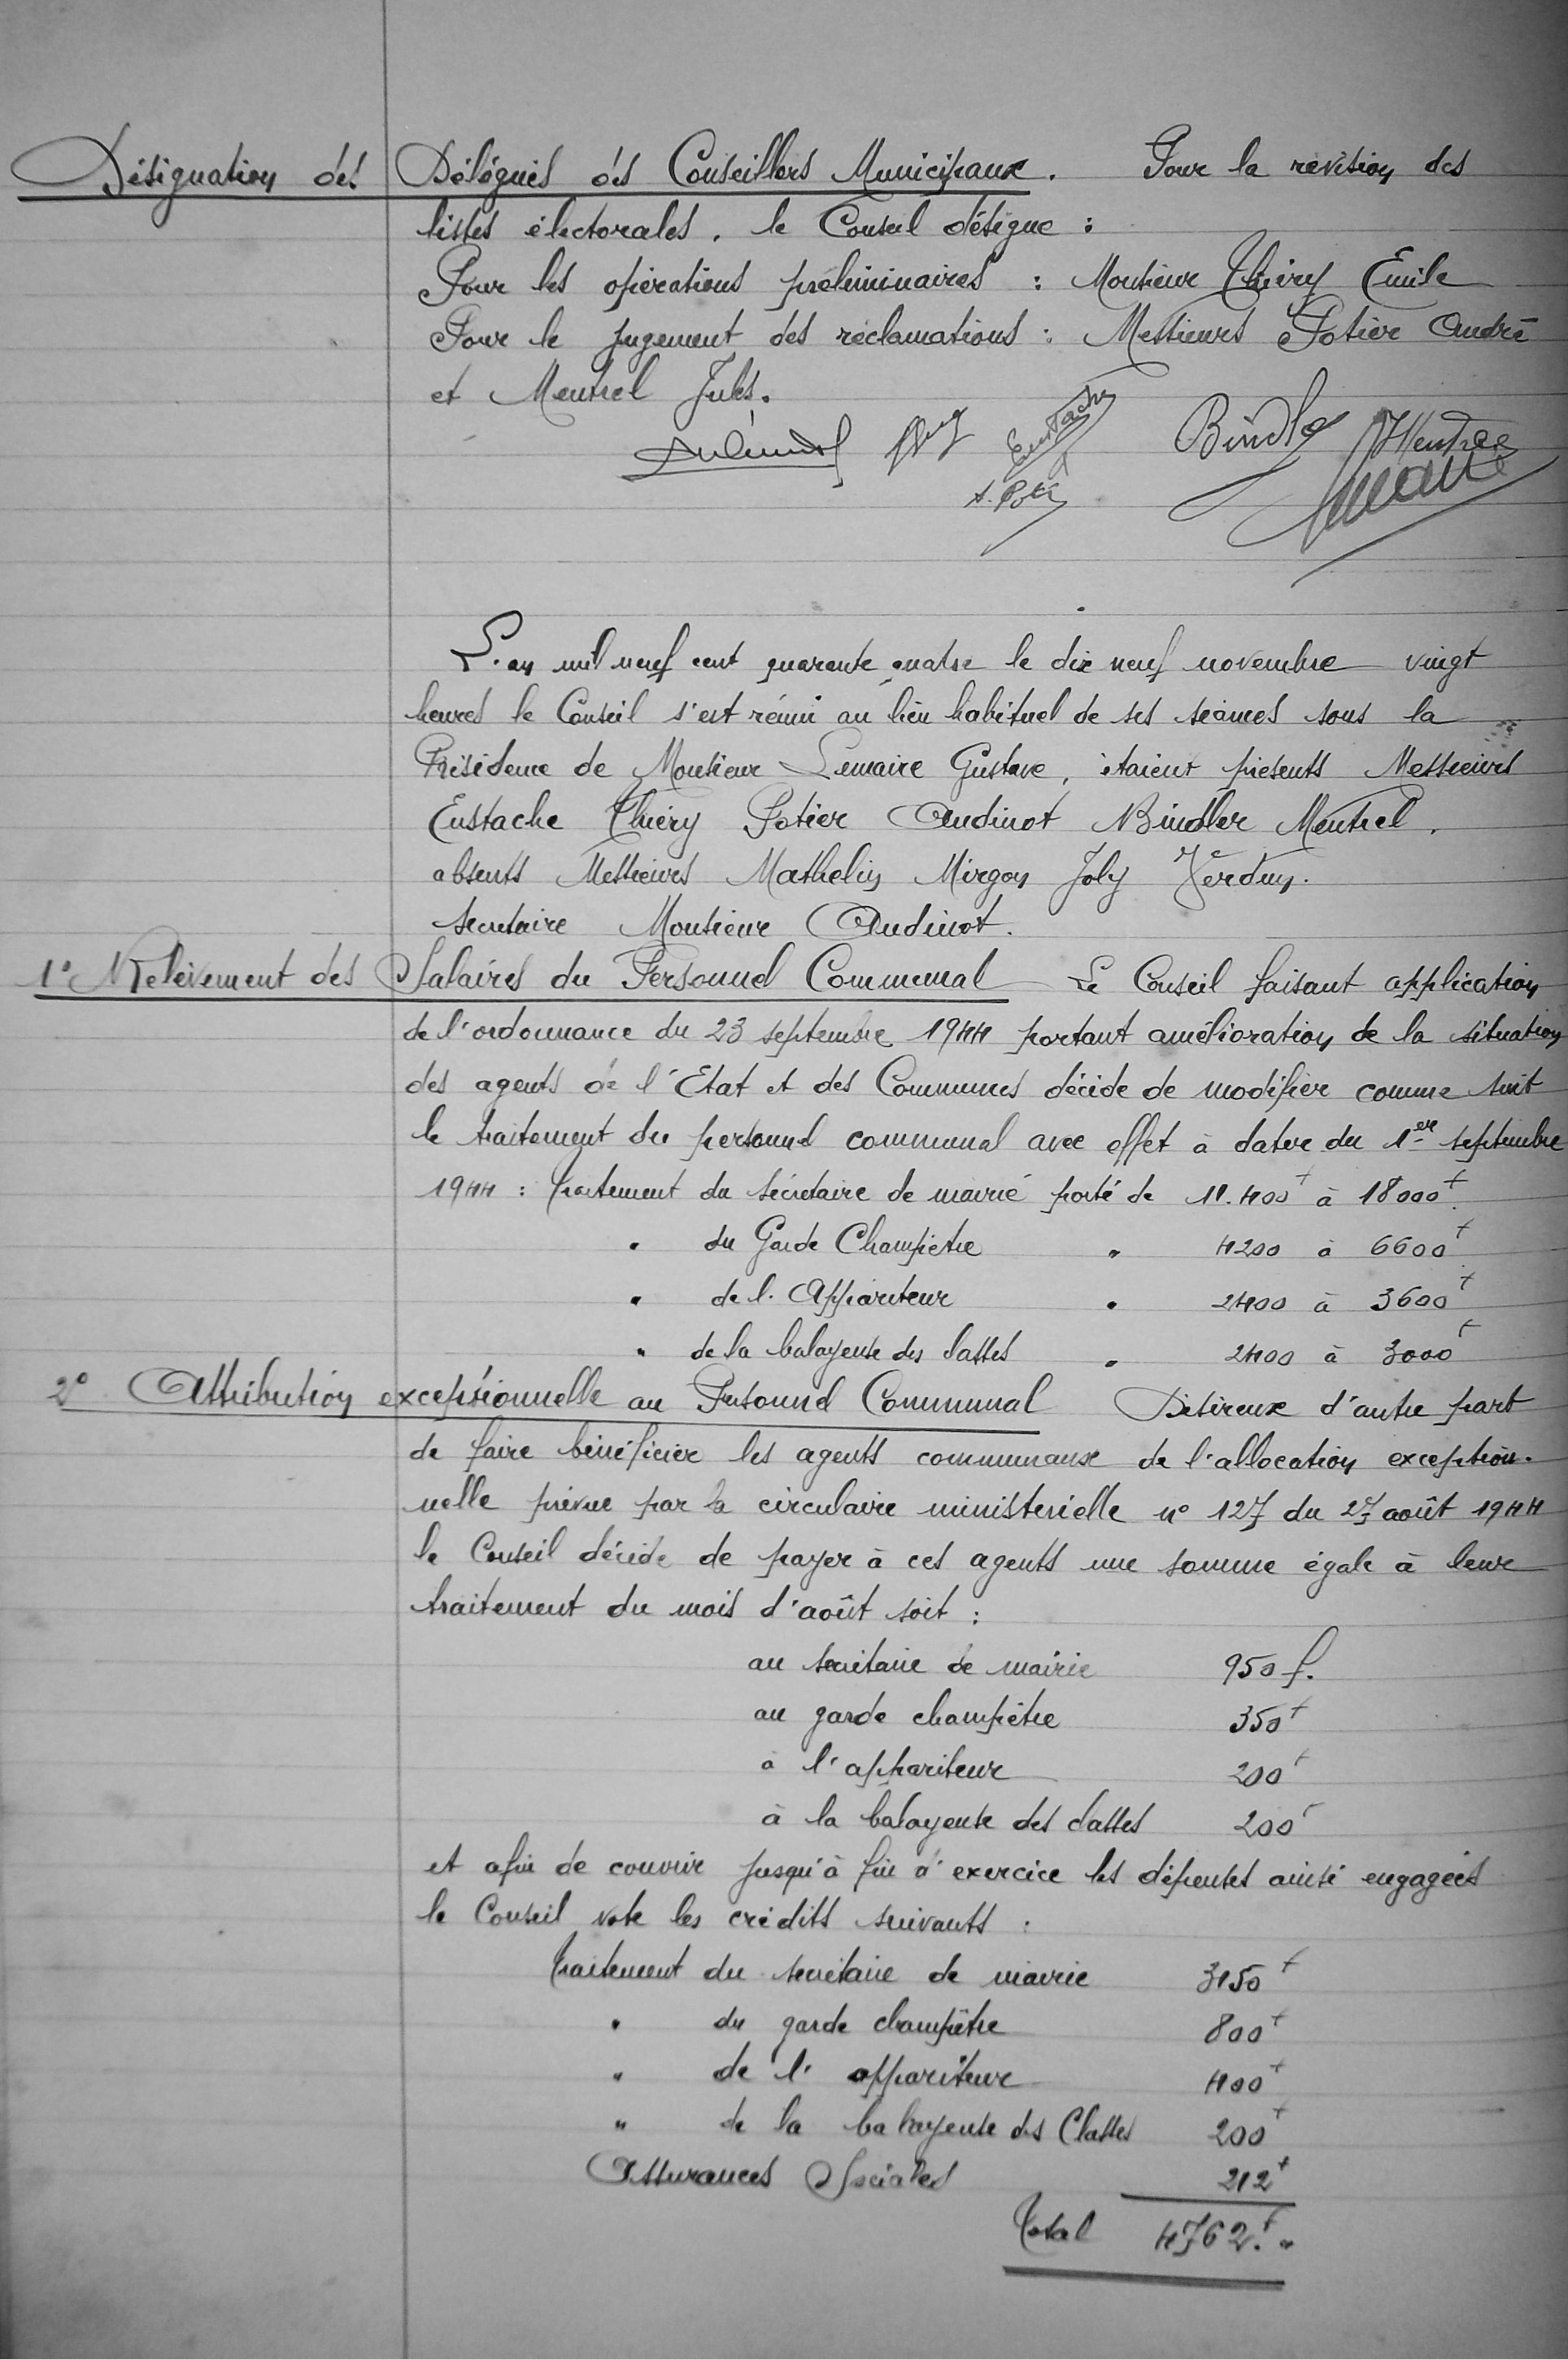 Désignation des Délégués des Conseillers Municipaux. Pour la révision des
listes électorales, le Conseil désigne :
Pour les opérations préliminaires : Monsieur Thiéry Emile
Pour le jugement des réclamations : Messieurs Potier André
et Mentrel Jules.
Eustache Bindler
A. Potier
L'an mil neuf cent quarante quatre le dix neuf novembre vingt
heures le Conseil s'est réuni au lieu habituel de ses séances sous la
Présidence de Monsieur Lemaire Gustave, étaient présents Messieurs
Eustache Thiéry Potier Audinot Bindler Mentrel.
absents Messieurs Mathelin Mirgon Joly Verdun.
secrétaire Monsieur Audinot.
1° Relèvement des Salaires du Personnel Communal Le Conseil faisant application
de l'ordonnance du 23 septembre 1944 portant amélioration de la situation
des agents de l'Etat et des Communes décide de modifier comme suit
le traitement du personnel communal avec effet à dater du 1er septembre
1944 : traitement du secrétaire de mairie porté de 11.400f à 18000f.
" du Garde Champêtre " 4200 à 6600f
" de l'Appariteur " 2400 à 3600f
" de la balayeuse des classes " 2400 à 3000f
2° Attribution exceptionnelle au Personnel Communal Désireux d'autre part
de faire bénéficier les agents communaux de l'allocation exception-
nelle prévue par la circulaire ministérielle n° 127 du 27 août 1944
le Conseil décide de payer à ces agents une somme égale à leur
traitement du mois d'août soit :
au secrétaire de mairie 950 f.
au garde champêtre 350f
à l'appariteur 200f
à la balayeuse des classes 200f
et afin de couvrir jusqu'à fin d'exercice les dépenses ainsi engagées
le Conseil vote les crédits suivants :
Traitement du secrétaire de mairie 3150f
" du garde champêtre 800f
" de l'appariteur 400f
" de la balayeuse des Classes 200f
Assurances Sociales 212f
Total 4762f."